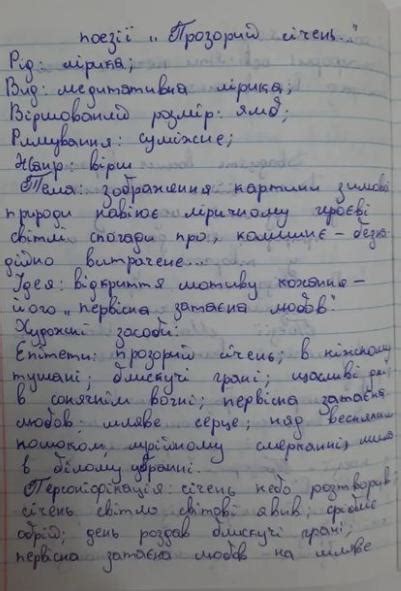 поезії „Прозорий січень..."
Рід: лірика;
Вид: медитативна лірика;
Віршований розмір: ямб;
Римування: суміжне;
Жанр: вірш
Тема: зображення картини зимової
природи навіює ліричному героєві
світлі спогади про „колишнє – безна
дійно витрачене...
Ідея: відкриття мотиву кохання –
його „первісна затаєна любов".
Художні засоби:
Епітети: прозорий січень; в ніжному
тумані; блискучі грані; щасливі дні;
в сонячнім вогні; первісна затаєна
любов; мляве серце; над весняним
потоком, мрійному смерканні,
в білому убранні.
Персоніфікація: січень небо розтворив;
січень світло світові явив; сріблиє
обрій; день роздав блискучі грані;
первісна затаєна любов на мляве